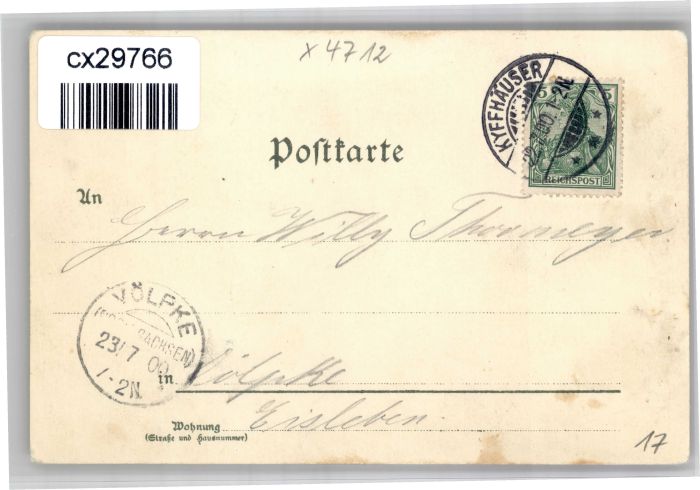 cx29766
x 4712
KYFFHÄUSER
00. 1-2N.
5
REICHSPOST
Poſtkarte
An
Herrn Willy Thormeyer
VÖLPKE
SACHSEN)
23/7 00
1-2N.
in Völpke
Eisleben.
Wohnung
(Straße und Hausnummer)
17